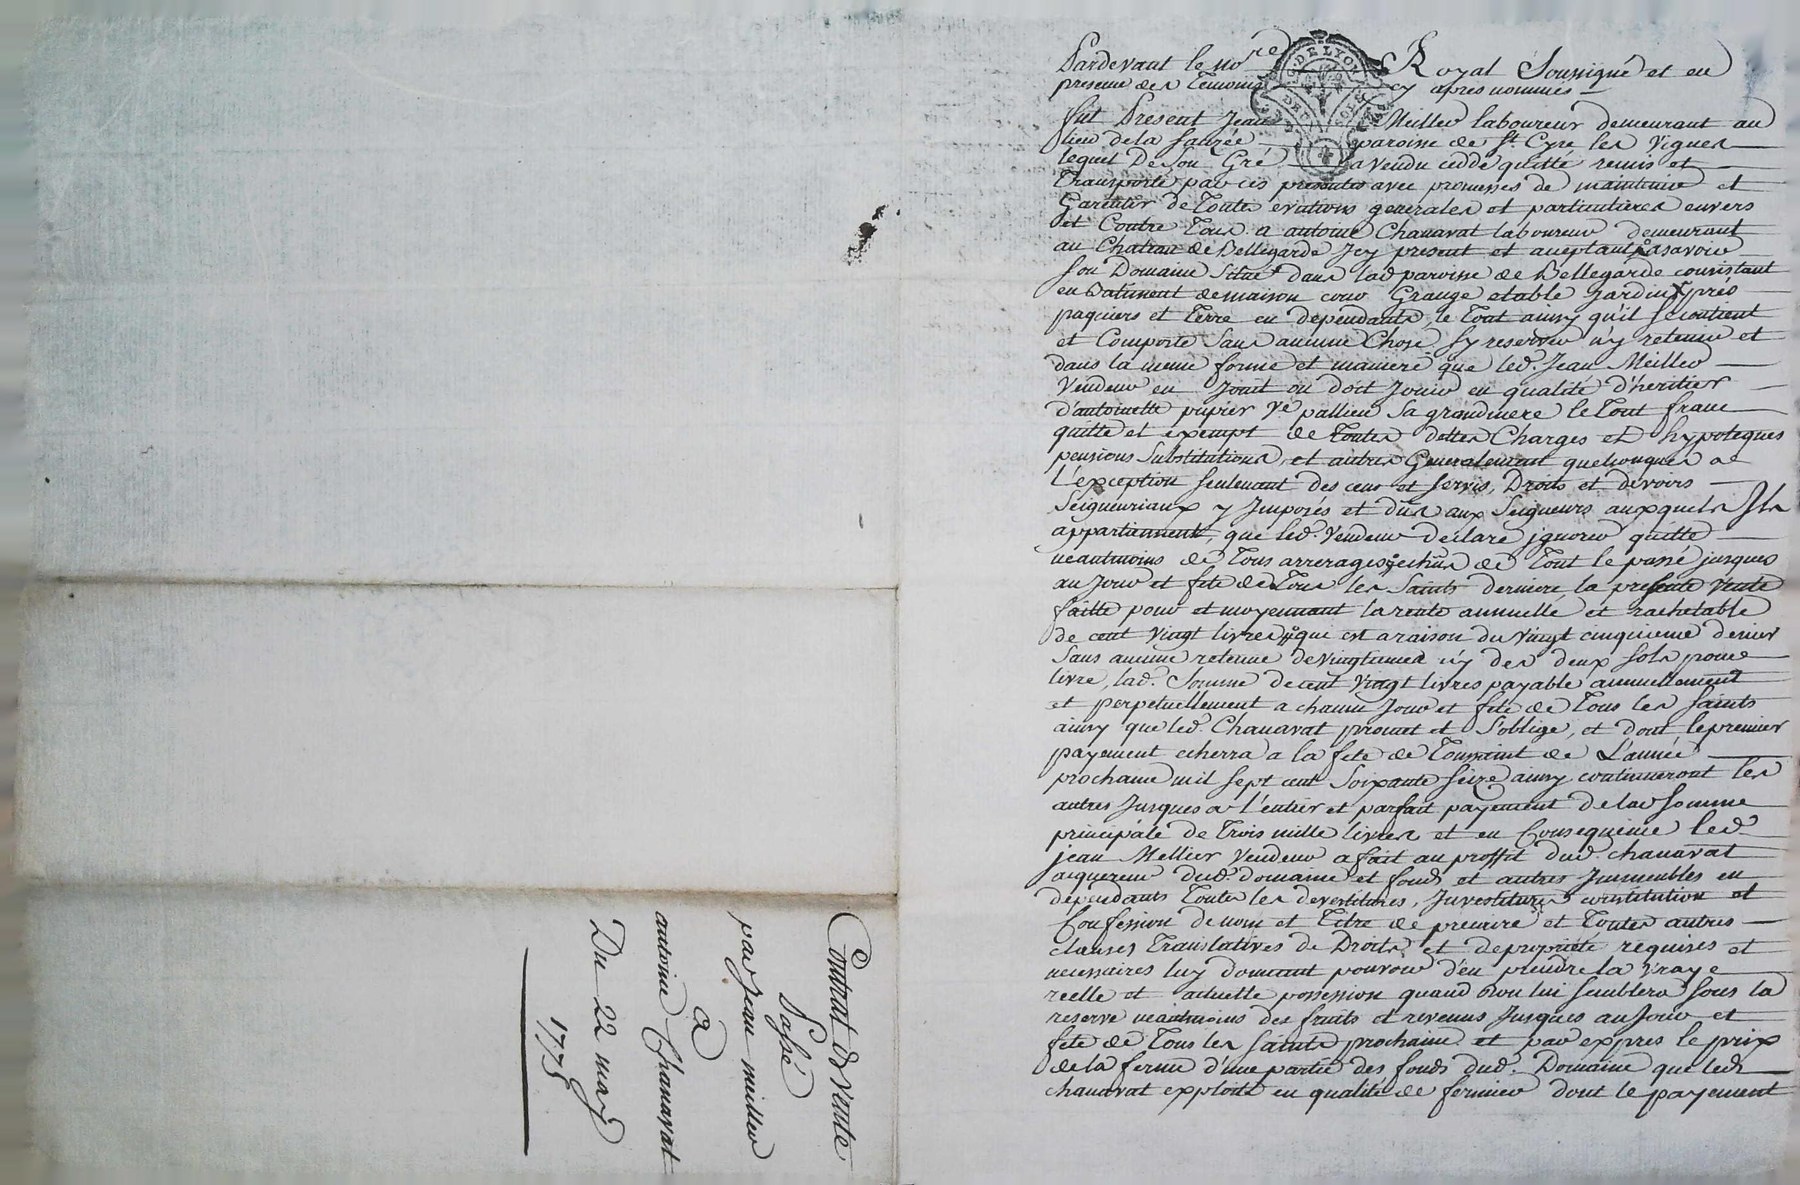 Contrat de Vente
Passé
par Jean Millier
a
antoine Chanavat
Du 22 mars
1775
G. DE LYON
Pardevant le no.re Royal Soussigné et en
presence des Temoins cy apres nommés
fut Present Jean Meillier laboureur demeurant au
lieu de la Sauzée paroisse de St. Cyre les Vignes
lequel De Son Gré a vendu cedde quitté remis et
Transporté par ces presentes avec promesses de maintenir et
Garentir de Toutes evictions generales et particulieres envers
et Contre Tous a antoine Chanavat laboureur demeurant
au Chateau de Bellegarde Jcy present et aceptant asavoir
Son Domaine Situé dans lad. paroisse de Bellegarde consistant
en Batiment de maison cour Grange etable Jardin prés
paquiers et Terre en dependants, le Tout ainsy qu'il Se contient
et Comporte Sans aucune Chose Sy reserver n'y retenir et
dans la meme forme et maniere que led. Jean Meillier
Vendeur en Jouit ou doit Jouir en qualité d'heritier
d'antoinette pupier Ve. pallieu Sa grandmere le Tout franc
quitte et exempt de Toutes dettes Charges et hypoteques
pensions Substitutions, et autres Generalement quelconques a
L'exception seulement des cens et servis, Droits et devoirs
Seigneuriaux y Jmposés et dûs aux Seigneurs auxquels Jls
appartiennent, que led. Vendeur declare jgnorer quitte
neantmoins de Tous arrerages echus de Tout le passé jusques
au Jour et fete de Tous les Saints derniere la presente Vente
faitte pour et moyennant la rente annuelle et rachetable
de cent vingt livres que est a raison du Vingt cinquieme denier
Sans aucune retenue de vingtiemes n'y des deux sols pour
livre, lad. Somme de cent vingt livres payable annuellement
et perpetuellement a chacun Jour et fete de Tous les Saints
ainsy que led. Chanavat promet et S'oblige, et dont le premier
payement echerra a la fete de Toussaint de L'année
prochaine mil sept cent Soixante seize ainsy continueront les
autres Jusques a l'entier et parfait payement de lad Somme
principale de Trois mille livres et en Consequence led.
jean Mellier Vendeur a fait au proffit dud. chanavat
aquereur dud. domaine et fonds et autres Jmmeubles en
dependants Toutes les devestitures, Jnvestitures constitution et
Confession de nom et Titre de precaire et Toutes autres
clauses Translatives de Droits, et de propriété requises et
necessaires luy donnant pouvoir d'en prendre la vraye
reelle et actuelle possession quand bon lui semblera Sous la
reserve neantmoins des fruits et revenus Jusques au Jour et
fete de Tous les Saints prochaine et par exprès le prix
de la ferme d'une partie des fonds dud. Domaine que led.
chanavat exploite en qualité de fermier dont le payement